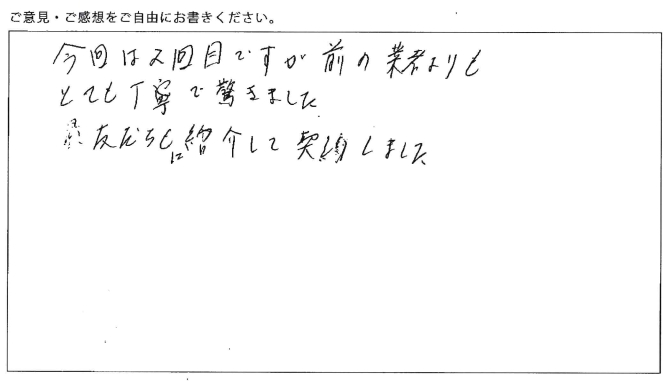 ご意見・ご感想をご自由にお書きください。
今回は2回目ですが前の業者よりも
とても丁寧で驚きました
友だちにも紹介して契約しました